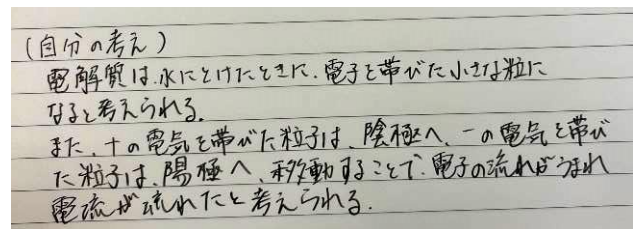 (自分の考え)
電解質は、水にとけたときに、電子を帯びた小さな粒に
なると考えられる。
また、+の電気を帯びた粒子は、陰極へ、-の電気を帯び
た粒子は、陽極へ、移動することで、電子の流れがうまれ
電流が流れたと考えられる。